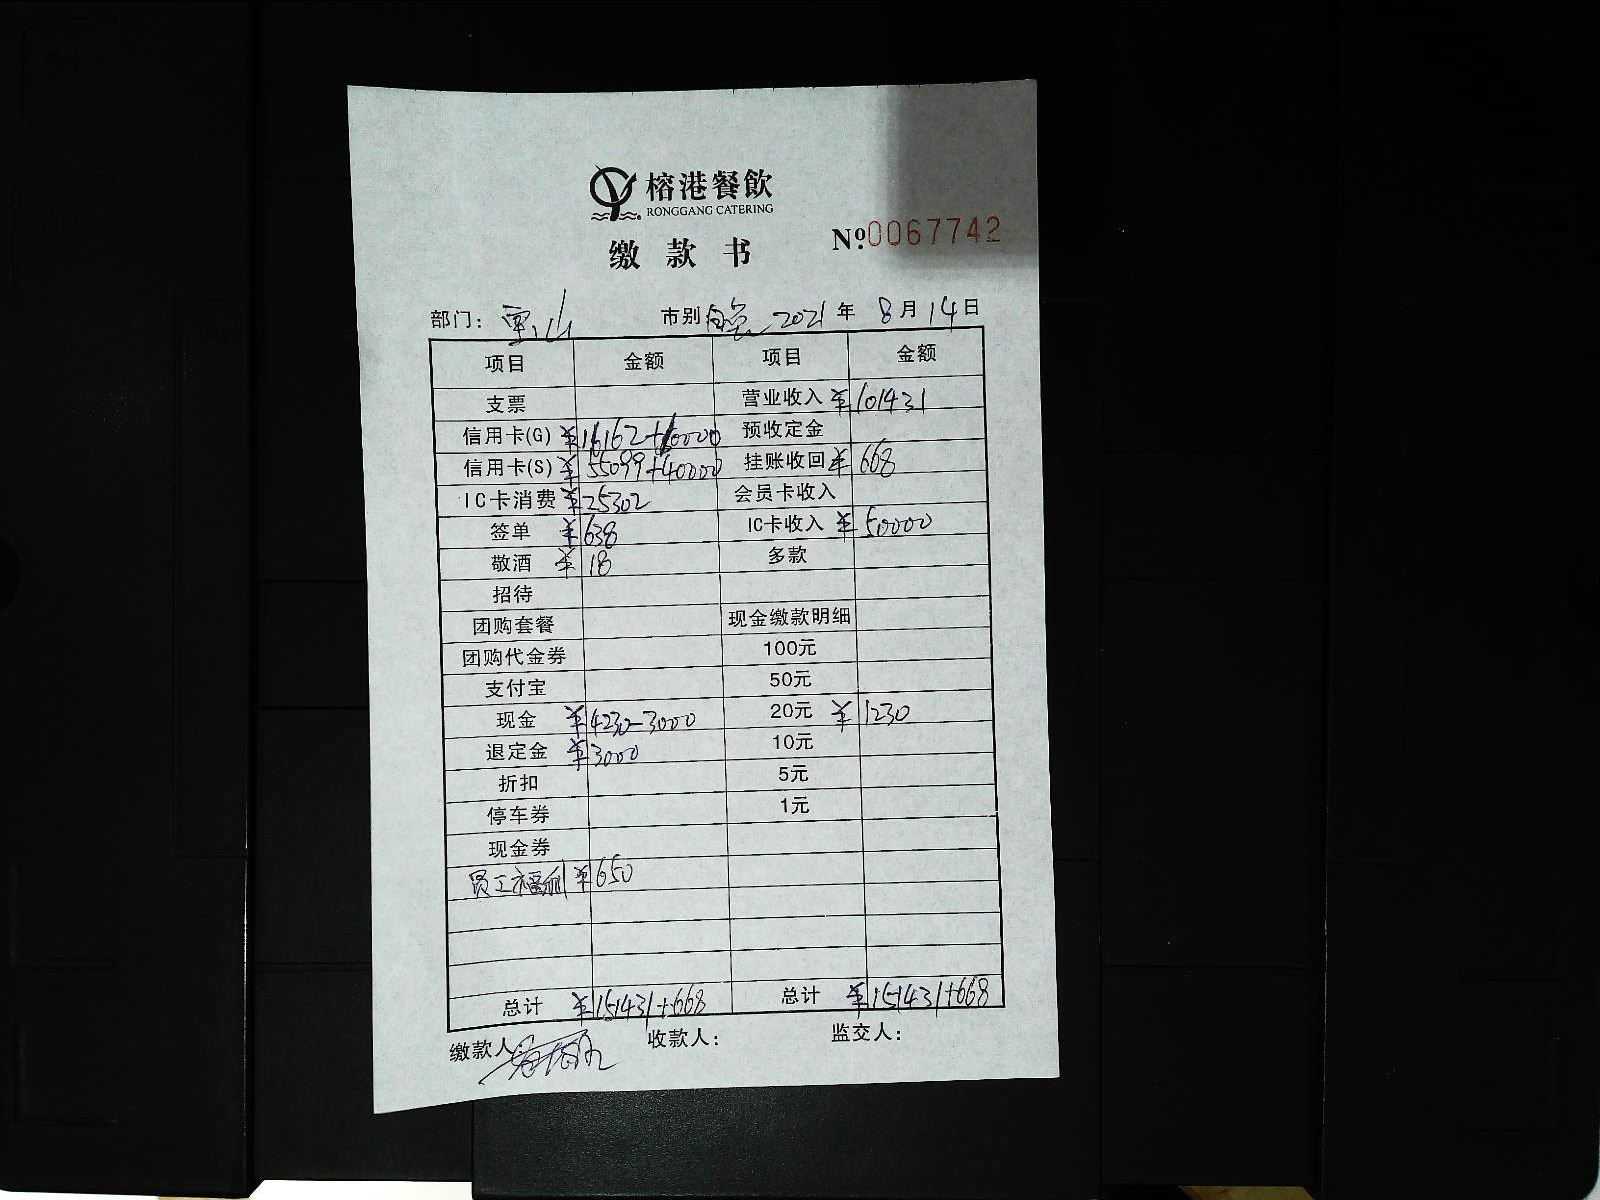 榕港餐飲
RONGGANG CATERING
缴款书 №0067742
部门: 市别 2021年 8月14日
项目 金额 项目 金额
支票 营业收入 ¥101431
信用卡(G) ¥16162+10000 预收定金
信用卡(S) ¥55099+40000 挂账收回 ¥668
IC卡消费 ¥25302 会员卡收入
签单 ¥638 IC卡收入 ¥50000
敬酒 ¥18 多款
招待
团购套餐 现金缴款明细
团购代金券 100元
支付宝 50元
现金 ¥4230-3000 20元 ¥1230
退定金 ¥3000 10元
折扣 5元
停车券 1元
现金券
员工福利 ¥650
总计 ¥151431+668 总计 ¥151431+668
缴款人: 收款人: 监交人: